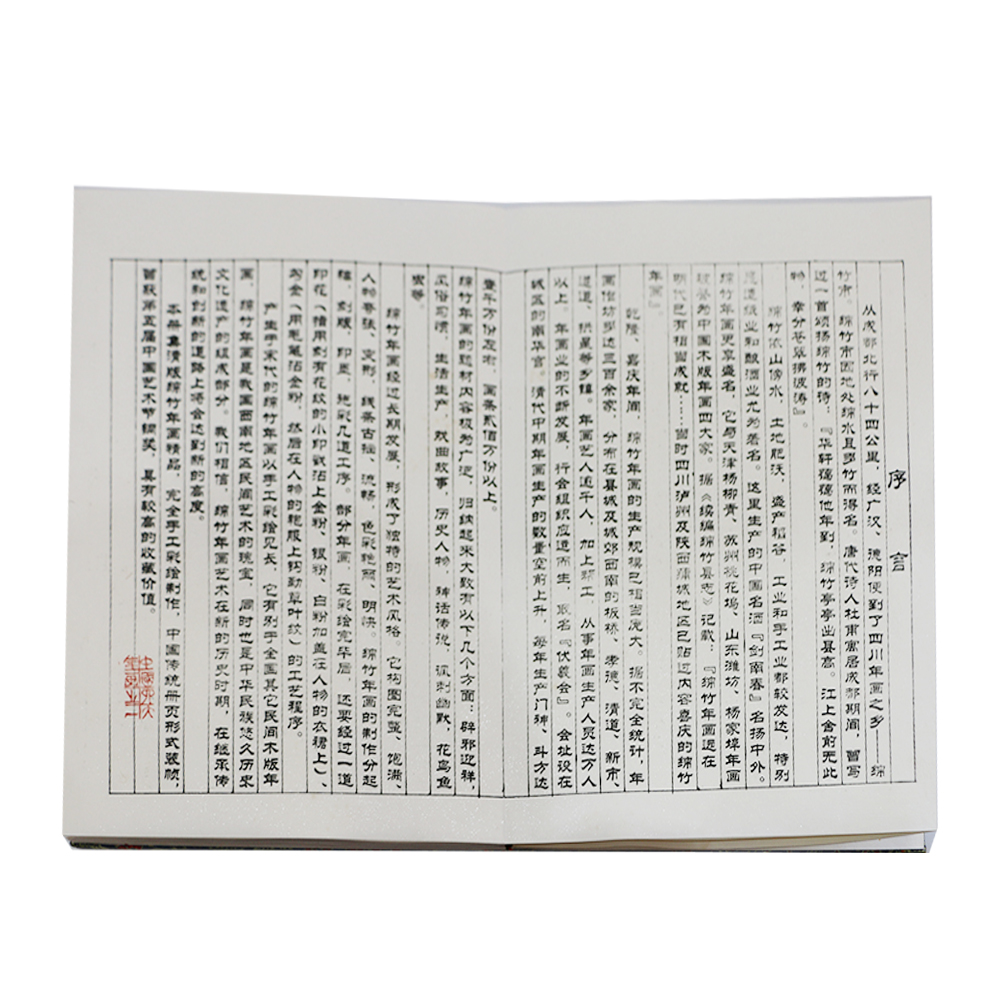 序言
从成都北行八十四公里，经广汉、德阳便到了四川年画之乡——绵
竹市。绵竹市因地处绵水且多竹而得名。唐代诗人杜甫寓居成都期间，曾写
过一首颂扬绵竹的诗：『华轩蔼蔼他年到，绵竹亭亭出县高。江上舍前无此
物，幸分苍翠拂波涛』。
绵竹依山傍水，土地肥沃，盛产稻谷，工业和手工业都较发达，特别
是造纸业和酿酒业尤为著名。这里生产的中国名酒『剑南春』名扬中外。
绵竹年画更享盛名，它与天津杨柳青、苏州桃花坞、山东潍坊、杨家埠年画
被誉为中国木版年画四大家。据《续编绵竹县志》记载：『绵竹年画远在
明代已有相当成就……当时四川泸州及陕西蒲城地区已贴过内容喜庆的绵竹
年画』。
乾隆、嘉庆年间，绵竹年画的生产规模已相当庞大。据不完全统计，年
画作坊约达三百余家，分布在县城及城郊西南的板桥、孝德、清道、新市、
遵道、拱星等乡镇。年画艺人近千人，加上帮工，从事年画生产人员达万人
以上。年画业的不断发展，行会组织应运而生，取名『伏羲会』。会址设在
城区的南华宫。清代中期年画生产的数量空前上升，每年生产门神、斗方达
壹千万份左右，画条贰佰万份以上。
绵竹年画的题材内容极为广泛，归纳起来大致有以下几个方面：辟邪迎祥，
风俗习惯，生活生产，戏曲故事，历史人物，神话传说，讽刺幽默，花鸟鱼
虫等。
绵竹年画经过长期发展，形成了独特的艺术风格。它构图完整、饱满，
人物夸张、变形，线条古拙、流畅，色彩艳丽、明快。绵竹年画的制作分起
稿、刻版、印墨、施彩几道工序。部分年画，在彩绘完毕后，还要经过一道
印花（指用刻有花纹的小印戳沾上金粉、银粉、白粉加盖在人物的衣裙上）、
勾金（用毛笔沾金粉，然后在人物的袍服上钩勒草叶纹）的工艺程序。
产生于宋代的绵竹年画以手工彩绘见长，它有别于全国其它民间木版年
画，绵竹年画是我国西南地区民间艺术的瑰宝，同时也是中华民族悠久历史
文化遗产的组成部分。我们相信，绵竹年画艺术在新的历史时期，在继承传
统和创新的道路上将会达到新的高度。
本册真清版绵竹年画精品，完全手工彩绘制作，中国传统册页形式装帧，
曾获第五届中国艺术节铜奖，具有较高的收藏价值。